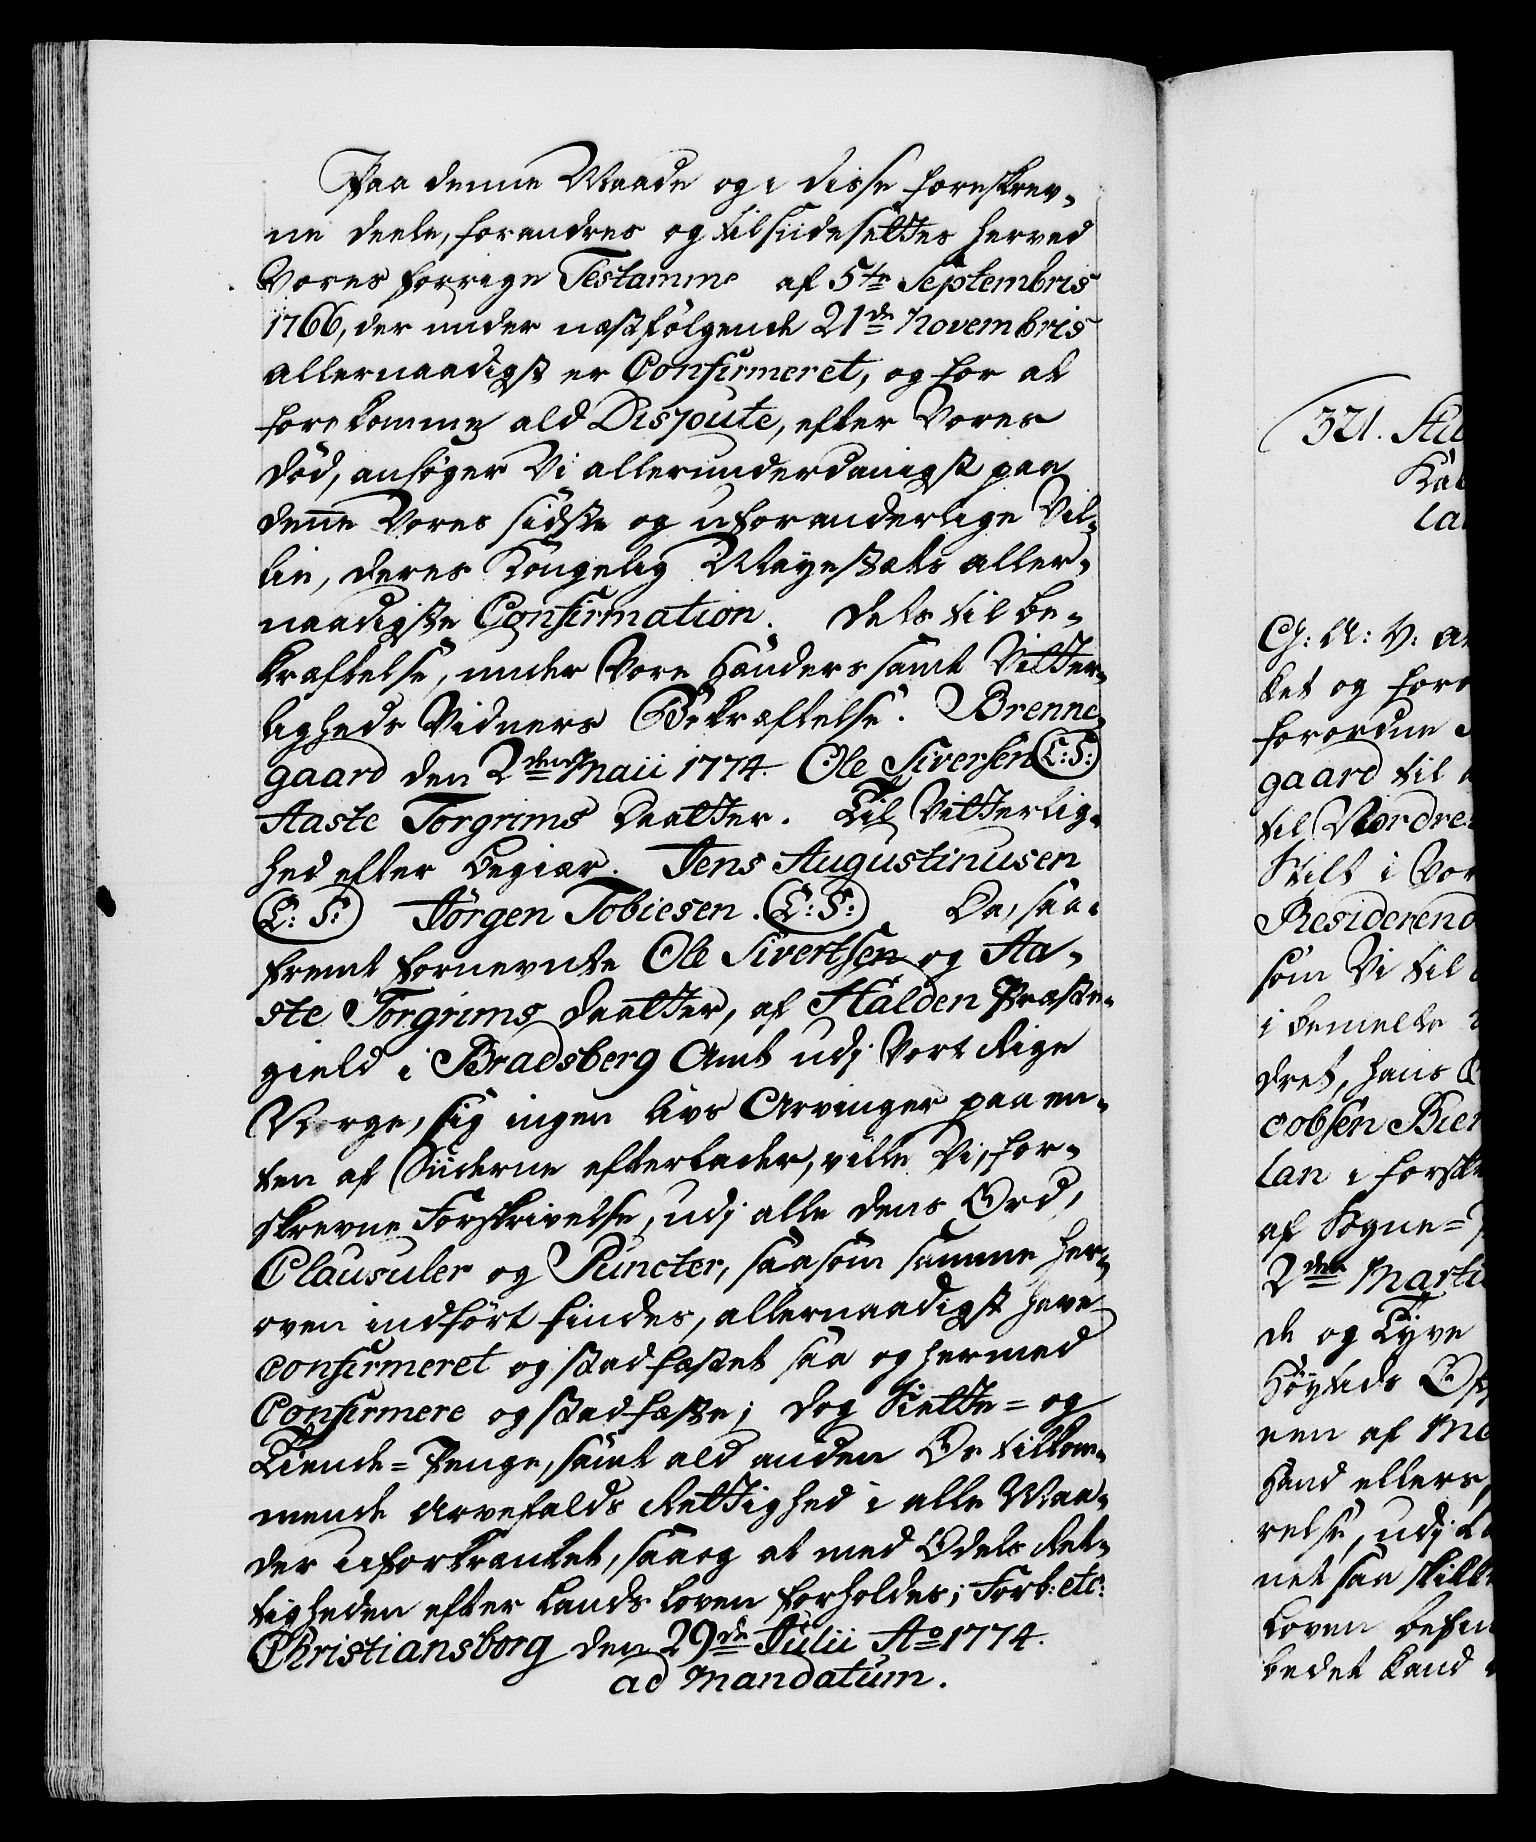 Paa denne Maade og i disse foreskrev-
ne deele, forandres og tilsiidesettes herved
Vores forrige Testamme af 5te Septembris
1766, der under næstfølgende 21de Novembris
allernaadigst er Confirmeret, og for at
forekomme ald Dispute, efter Vores
død, ansøger Vi allerunderdanigst paa
denne Vores sidste og uforanderlige Vil-
lie, deres Kongelig Mayestæts aller-
naadigste Confirmation. Dets til be-
kræftelse, under Vore Hænders samt Vitter-
ligheds Vidners Bekræftelse. Brenne-
gaard den 2den Maii 1774. Ole Siversen (L:S:)
Aaste Torgrims Daatter. Til Vitterlig-
hed efter begiær. Jens Augustinusen
(L:S:) Jørgen Tobiesen. (L:S:) Da, saa-
fremt fornevnte Ole Sivertsen og Aa-
ste Torgrims Daatter, af Halden Præste-
gield i Bradsberg Amt udj Vort Rige
Norge, sig ingen livs Arvinger paa en-
ten af Siiderne efterlader, ville Vi, for-
skrevne Forskrivelse, udj alle dens Ord,
Clausuler og Puncter, saasom samme her-
oven indført findes, allernaadigst have
confirmeret og stadfæstet saa og hermed
Confirmere og stadfæste; dog Siette= og
Tiende=Penge, samt ald anden Os tilkom-
mende Arvefalds Rettighed i alle Maa-
der uforkrænket, saa og at med Odels Ret-
tigheden efter Lands Loven forholdes; Forb: etc:
Christiansborg den 29de Julii Ao 1774.
ad Mandatum.
321. 
Ch: A: V: 
ket og 
forordne
gaard til
til Nordre
Stilt i Vor
Residerend
som Vi til
i bemelte
dret, hans
cobsen Bier
lan i forskr
af Sogne=
2den Martii
de og Tyve
Høytids
nen af
Haand ellers,
relse, udj
net saa
Loven befin
bedet kand